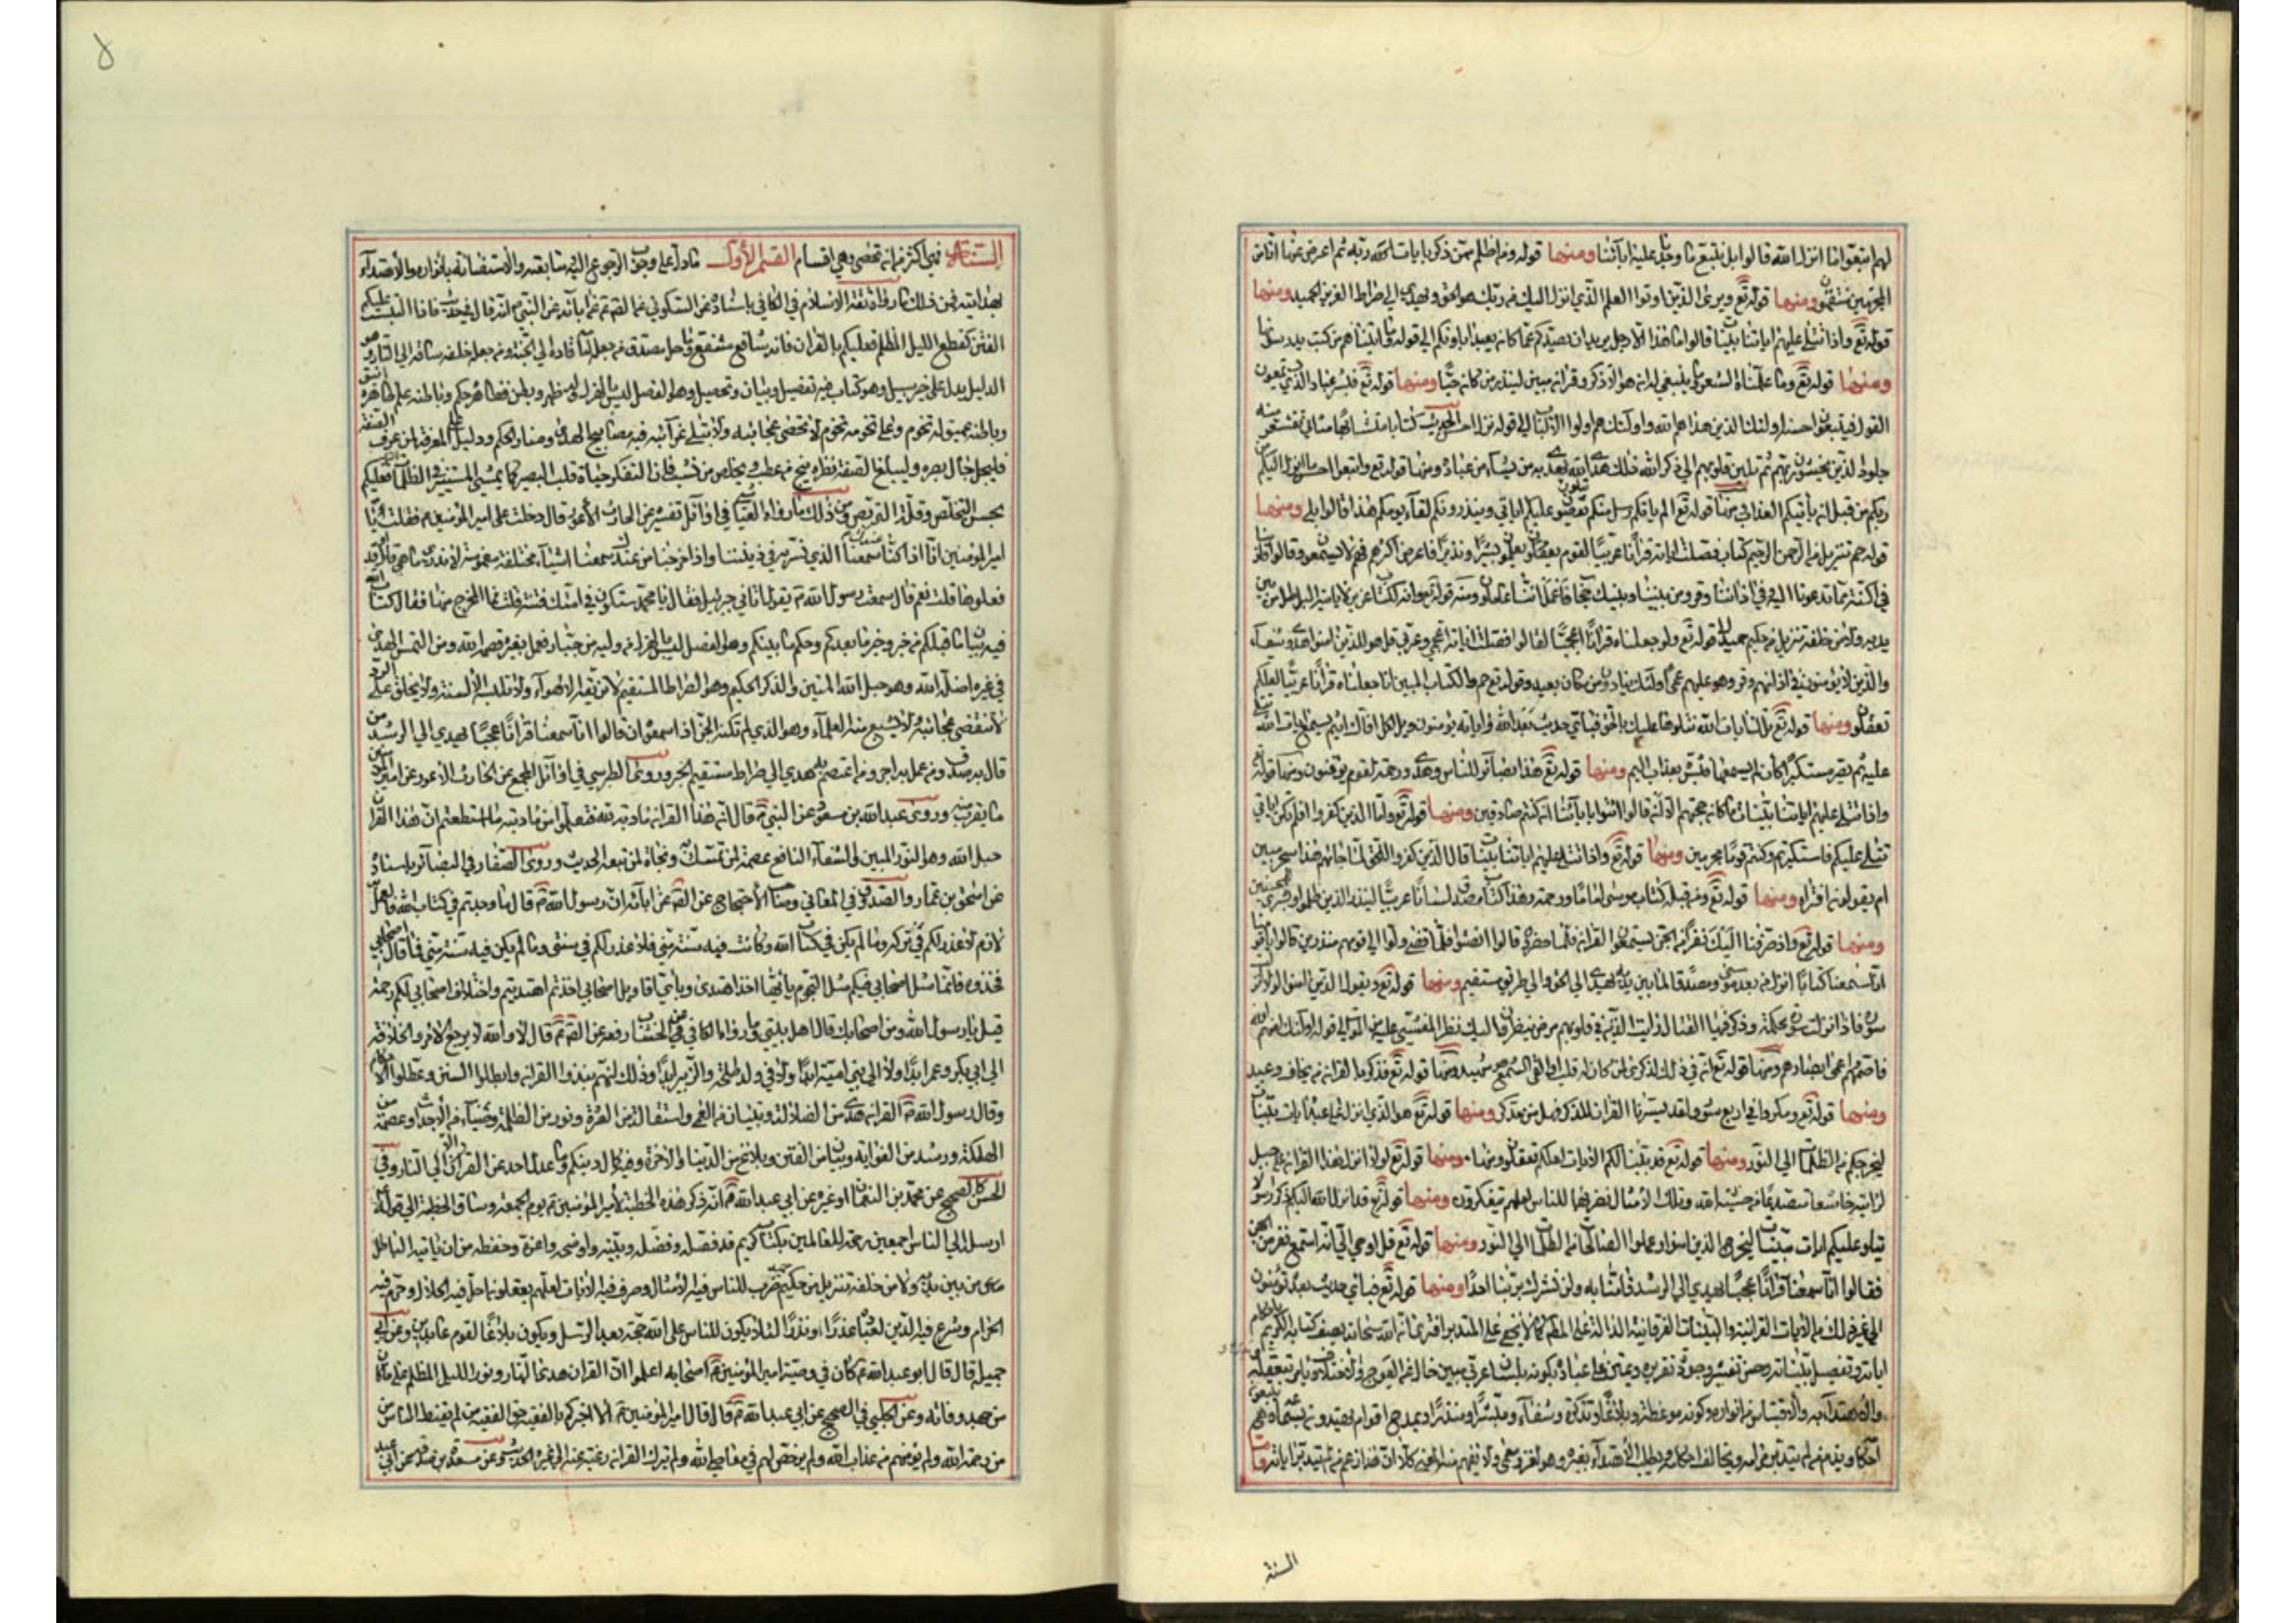 لهم اتبعوا ما انزل الله قالوا بل نتبع ما وجدنا عليه اباءنا ومنها قوله ومن اظلم ممن ذكر بايات ربه ثم اعرض عنها انا من
المجرمين منتقمون ومنها قوله تع ويرى الذين اوتوا العلم الذي انزل اليك من ربك هو الحق ويهدي الى صراط العزيز الحميد ومنها
قوله تع واذا تتلى عليهم اياتنا بينات قالوا ما هذا الا رجل يريد ان يصدكم عما كان يعبد اباؤكم الى قوله وما اتيناهم من كتب يدرسونها
ومنها قوله تع وما علمناه الشعر وما ينبغي له ان هو الا ذكر وقران مبين لينذر من كان حيا ومنها قوله تع فبشر عباد الذين يستمعون
القول فيتبعون احسنه اولئك الذين هداهم الله واولئك هم اولوا الالباب الى قوله نزل احسن الحديث كتابا متشابها مثاني تقشعر منه
جلود الذين يخشون ربهم ثم تلين قلوبهم الى ذكر الله ذلك هدى الله يهدي به من يشاء من عباده ومنها قوله تع واتبعوا احسن ما انزل اليكم من
ربكم من قبل ان ياتيكم العذاب ومنها قوله تع الم ياتكم رسل منكم يتلون عليكم اياتي وينذرونكم لقاء يومكم هذا قالوا بلى ومنها
قوله حم تنزيل من الرحمن الرحيم كتاب فصلت اياته قرانا عربيا لقوم يعلمون بشيرا ونذيرا فاعرض اكثرهم فهم لا يسمعون وقالوا قلوبنا
في اكنة مما تدعونا اليه وفي اذاننا وقر ومن بيننا وبينك حجاب فاعمل اننا عاملون ومنه قوله تع وانه لكتاب عزيز لا ياتيه الباطل من بين
يديه ولا من خلفه تنزيل من حكيم حميد قوله تع ولو جعلناه قرانا اعجميا لقالوا لولا فصلت اياته اعجمي وعربي قل هو للذين امنوا هدى وشفاء
والذين لا يؤمنون في اذانهم وقر وهو عليهم عمى اولئك ينادون من مكان بعيد وقوله تع حم والكتاب المبين انا جعلناه قرانا عربيا لعلكم
تعقلون ومنها قوله تع تلك ايات الله نتلوها عليك بالحق فباي حديث بعد الله واياته يؤمنون ويل لكل افاك اثيم يسمع ايات الله تتلى
عليه ثم يصر مستكبرا كان لم يسمعها فبشره بعذاب اليم ومنها قوله تع هذا بصائر للناس وهدى ورحمة لقوم يوقنون ومنها قوله تع
واذا تتلى عليهم اياتنا بينات ما كان حجتهم الا ان قالوا ائتوا باباءنا ان كنتم صادقين ومنها قوله تع واما الذين كفروا افلم تكن اياتي
تتلى عليكم فاستكبرتم وكنتم قوما مجرمين ومنها قوله تع واذا تتلى عليهم اياتنا بينات قال الذين كفروا للحق لما جاءهم هذا سحر مبين
ام يقولون افتراه ومنها قوله تع ومن قبله كتاب موسى اماما ورحمة وهذا كتاب مصدق لسانا عربيا لينذر الذين ظلموا وبشرى للمحسنين
ومنها قوله تع واذ صرفنا اليك نفرا من الجن يستمعون القران فلما حضروه قالوا انصتوا فلما قضي ولوا الى قومهم منذرين قالوا يا قومنا
انا سمعنا كتابا انزل من بعد موسى مصدقا لما بين يديه يهدي الى الحق والى طريق مستقيم ومنها قوله تع ويقول الذين امنوا لولا نزلت
سورة فاذا انزلت سورة محكمة وذكر فيها القتال رايت الذين في قلوبهم مرض ينظرون اليك نظر المغشي عليه من الموت الى قوله اولئك لعنهم الله
فاصمهم واعمى ابصارهم ومنها قوله تع ان في ذلك لذكرى لمن كان له قلب او القى السمع وهو شهيد ومنها قوله تع فذكر بالقران من يخاف وعيد
ومنها قوله تع ومكررا في اربع سور ولقد يسرنا القران للذكر فهل من مدكر ومنها قوله تع هو الذي ينزل على عبده ايات بينات
ليخرجكم من الظلمات الى النور ومنها قوله تع قد بينا لكم الايات لعلكم تعقلون ومنها قوله تع لو انزلنا هذا القران على جبل
لرايته خاشعا متصدعا من خشية الله وتلك الامثال نضربها للناس لعلهم يتفكرون ومنها قوله تع قد انزل الله اليكم ذكرا رسولا
يتلو عليكم ايات مبينات ليخرج الذين امنوا وعملوا الصالحات من الظلمات الى النور ومنها قوله تع قل اوحي الي انه استمع نفر من الجن
فقالوا انا سمعنا قرانا عجبا يهدي الى الرشد فامنا به ولن نشرك بربنا احدا ومنها قوله تع فباي حديث بعده يؤمنون
الى غير ذلك من الايات القرانية والبينات الفرقانية الدالة على المط كما لا يخفى على المتدبر
السنة
السنة فهي اكثر من ان تحصى وهي اقسام القسم الاول ما دل على وجوب الرجوع اليه ومتابعته والاستضائة بانواره والاهتداء
بهدايته فمن ذلك ما رواه ثقة الاسلام في الكافي باسناده عن السكوني عن الصم عن ابائه عن النبي ص انه قال في حديث فاذا التبست عليكم
الفتن كقطع الليل المظلم فعليكم بالقران فانه شافع مشفع وماحل مصدق من جعله امامه قاده الى الجنة ومن جعله خلفه ساقه الى النار وهو
الدليل يدل على خير سبيل وهو كتاب فيه تفصيل وبيان وتحصيل وهو الفصل ليس بالهزل وله ظهر وبطن فظاهره حكم وباطنه علم ظاهره انيق
وباطنه عميق له تخوم وعلى تخومه تخوم لا تحصى عجائبه ولا تبلى غرائبه فيه مصابيح الهدى ومنار الحكم ودليل على المعرفة لمن عرف الصفة
فليجل جال بصره وليبلغ الصفة نظره ينج من عطب ويخلص من نشب فان التفكر حياة قلب البصير كما يمشي المستنير في الظلمات فعليكم
بحسن التخلص وقلة التربص ومن ذلك ما رواه العياشي في اوائل تفسيره عن الحارث الاعور قال دخلت على امير المؤمنين ع فقلت يا
امير المؤمنين انا اذا كنا عندك سمعنا الذي نسر به في ديننا واذا خرجنا من عندك سمعنا اشياء مختلفة مغموسة لا ندري ما هي قال او قد
فعلوها قلت نعم قال سمعت رسول الله ص يقول اتاني جبرئيل فقال يا محمد ستكون في امتك فتنة قلت فما المخرج منها فقال كتاب الله
فيه بيان ما قبلكم من خبر وخبر ما بعدكم وحكم ما بينكم وهو الفصل ليس بالهزل من وليه من جبار فعمل بغيره قصمه الله ومن التمس الهدى
في غيره اضله الله وهو حبل الله المتين والذكر الحكيم وهو الصراط المستقيم لا تزيغه الاهواء ولا تلبسه الالسنة ولا يخلق على الرد
لا تنقضي عجائبه ولا يشبع منه العلماء وهو الذي لم تكنه الجن اذ سمعوه ان قالوا انا سمعنا قرانا عجبا يهدي الى الرشد من
قال به صدق ومن عمل به اجر ومن اعتصم به هدي الى صراط مستقيم الخبر وروى الطبرسي في اوائل المجمع عن الحارث الاعور عن امير المؤمنين
ما يقرب منه وروى عبدالله بن مسعود عن النبي ص قال ان هذا القران مادبة الله فتعلموا من مادبته ما استطعتم ان هذا القران
حبل الله وهو النور المبين والشفاء النافع عصمة لمن تمسك به ونجاة لمن تبعه الحديث وروى الصفار في البصائر باسناده
عن اسحق بن عمار والصدوق في المعاني وصاحب الاحتجاج عن الصم عن ابائه ان رسول الله ص قال ما وجدتم في كتاب الله فالعمل به
لازم لا عذر لكم في تركه وما لم يكن في كتاب الله وكانت فيه سنة مني فلا عذر لكم في ترك سنتي وما لم يكن فيه سنة مني فما قال اصحابي
فخذوه فانما مثل اصحابي فيكم مثل النجوم بايها اخذ اهتدى وباي اقاويل اصحابي اخذتم اهتديتم واختلاف اصحابي لكم رحمة
قيل يا رسول الله ومن اصحابك قال اهل بيتي
الى ابي بكر وعمر ابدا ولا الى بني امية ابدا ولا في ولد طلحة والزبير ابدا وذلك انهم نبذوا القران وابطلوا السنن وعطلوا الاحكام
وقال رسول الله ص القران هدى من الضلالة وتبيان من العمى واستقالة من العثرة ونور من الظلمة وضياء من الاحداث وعصمة من
الهلكة ورشد من الغواية وبيان من الفتن وبلاغ من الدنيا الى الاخرة وفيه كمال دينكم وما عدل احد عن القران الا الى النار وفي
عن محمد بن النعمان او غيره عن ابي عبد الله ع انه ذكر هذه الخطبة لامير المؤمنين ع يوم الجمعة وساق الخطبة الى قوله
ارسله الى الناس اجمعين رحمة للعالمين بكتاب كريم قد فصله وفضله وبينه واوضحه واعزه وحفظه من ان ياتيه الباطل
من بين يديه ولا من خلفه تنزيل من حكيم حميد ضرب للناس فيه الامثال وصرف فيه الايات لعلهم يعقلون احل فيه الحلال وحرم فيه
الحرام وشرع فيه الدين لعباده عذرا ونذرا لئلا يكون للناس على الله حجة بعد الرسل ويكون بلاغا لقوم عابدين وعن ابي
جميلة قال قال ابو عبد الله ع كان في وصية امير المؤمنين ع اصحابه اعلموا ان القران هدى النهار ونور الليل المظلم على ما كان
من جهد وفاقة وعن الحلبي في الصحيح عن ابي عبد الله ع قال قال امير المؤمنين ع الا اخبركم بالفقيه حق الفقيه من لم يقنط الناس من
رحمة الله ولم يؤمنهم من عذاب الله ولم يرخص لهم في معاصي الله ولم يترك القران رغبة عنه الى غيره الحديث وعن مسعدة بن صدقة عن ابي عبد